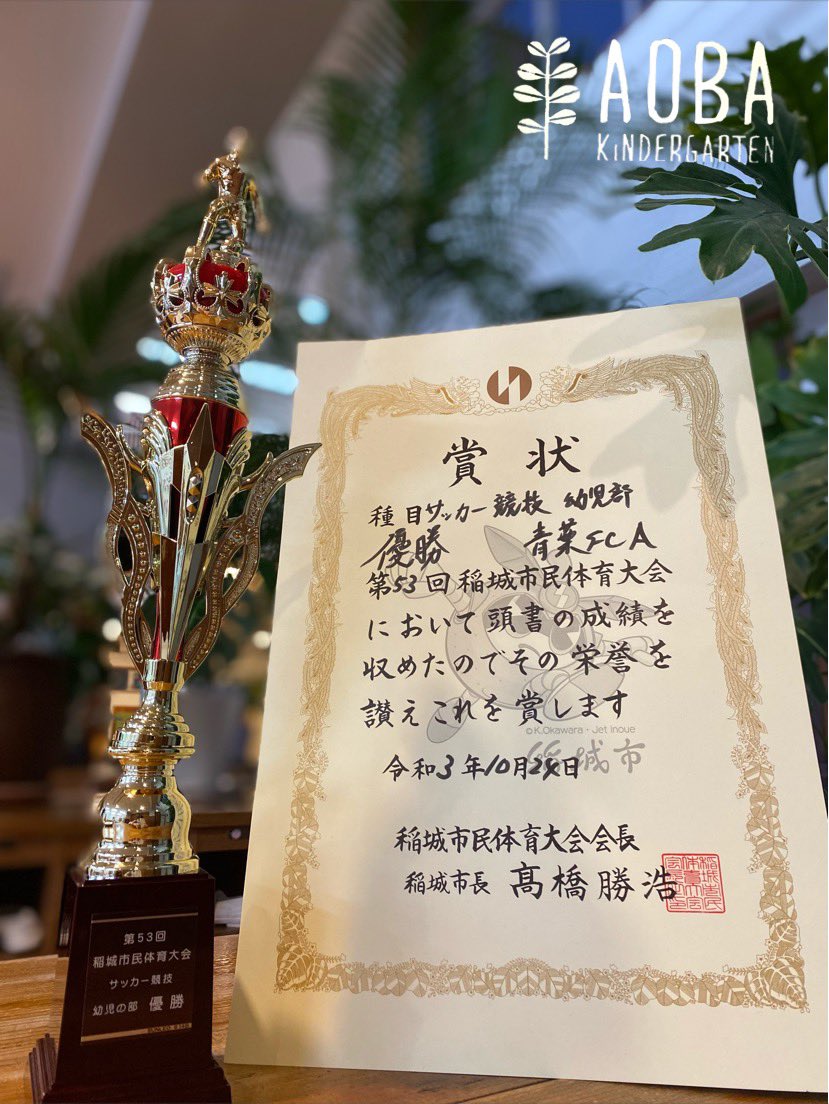 AOBA
KINDERGARTEN
賞状
種目サッカー競技 幼児部
優勝 青葉FCA
第53回稲城市民体育大会
において頭書の成績を
収めたのでその栄誉を
讃えこれを賞します
©K.Okawara・Jet inoue
稲城市
令和3年10月24日
稲城市民体育大会会長
稲城市長 髙橋勝浩
第53回
稲城市民体育大会
サッカー競技
幼児の部 優勝